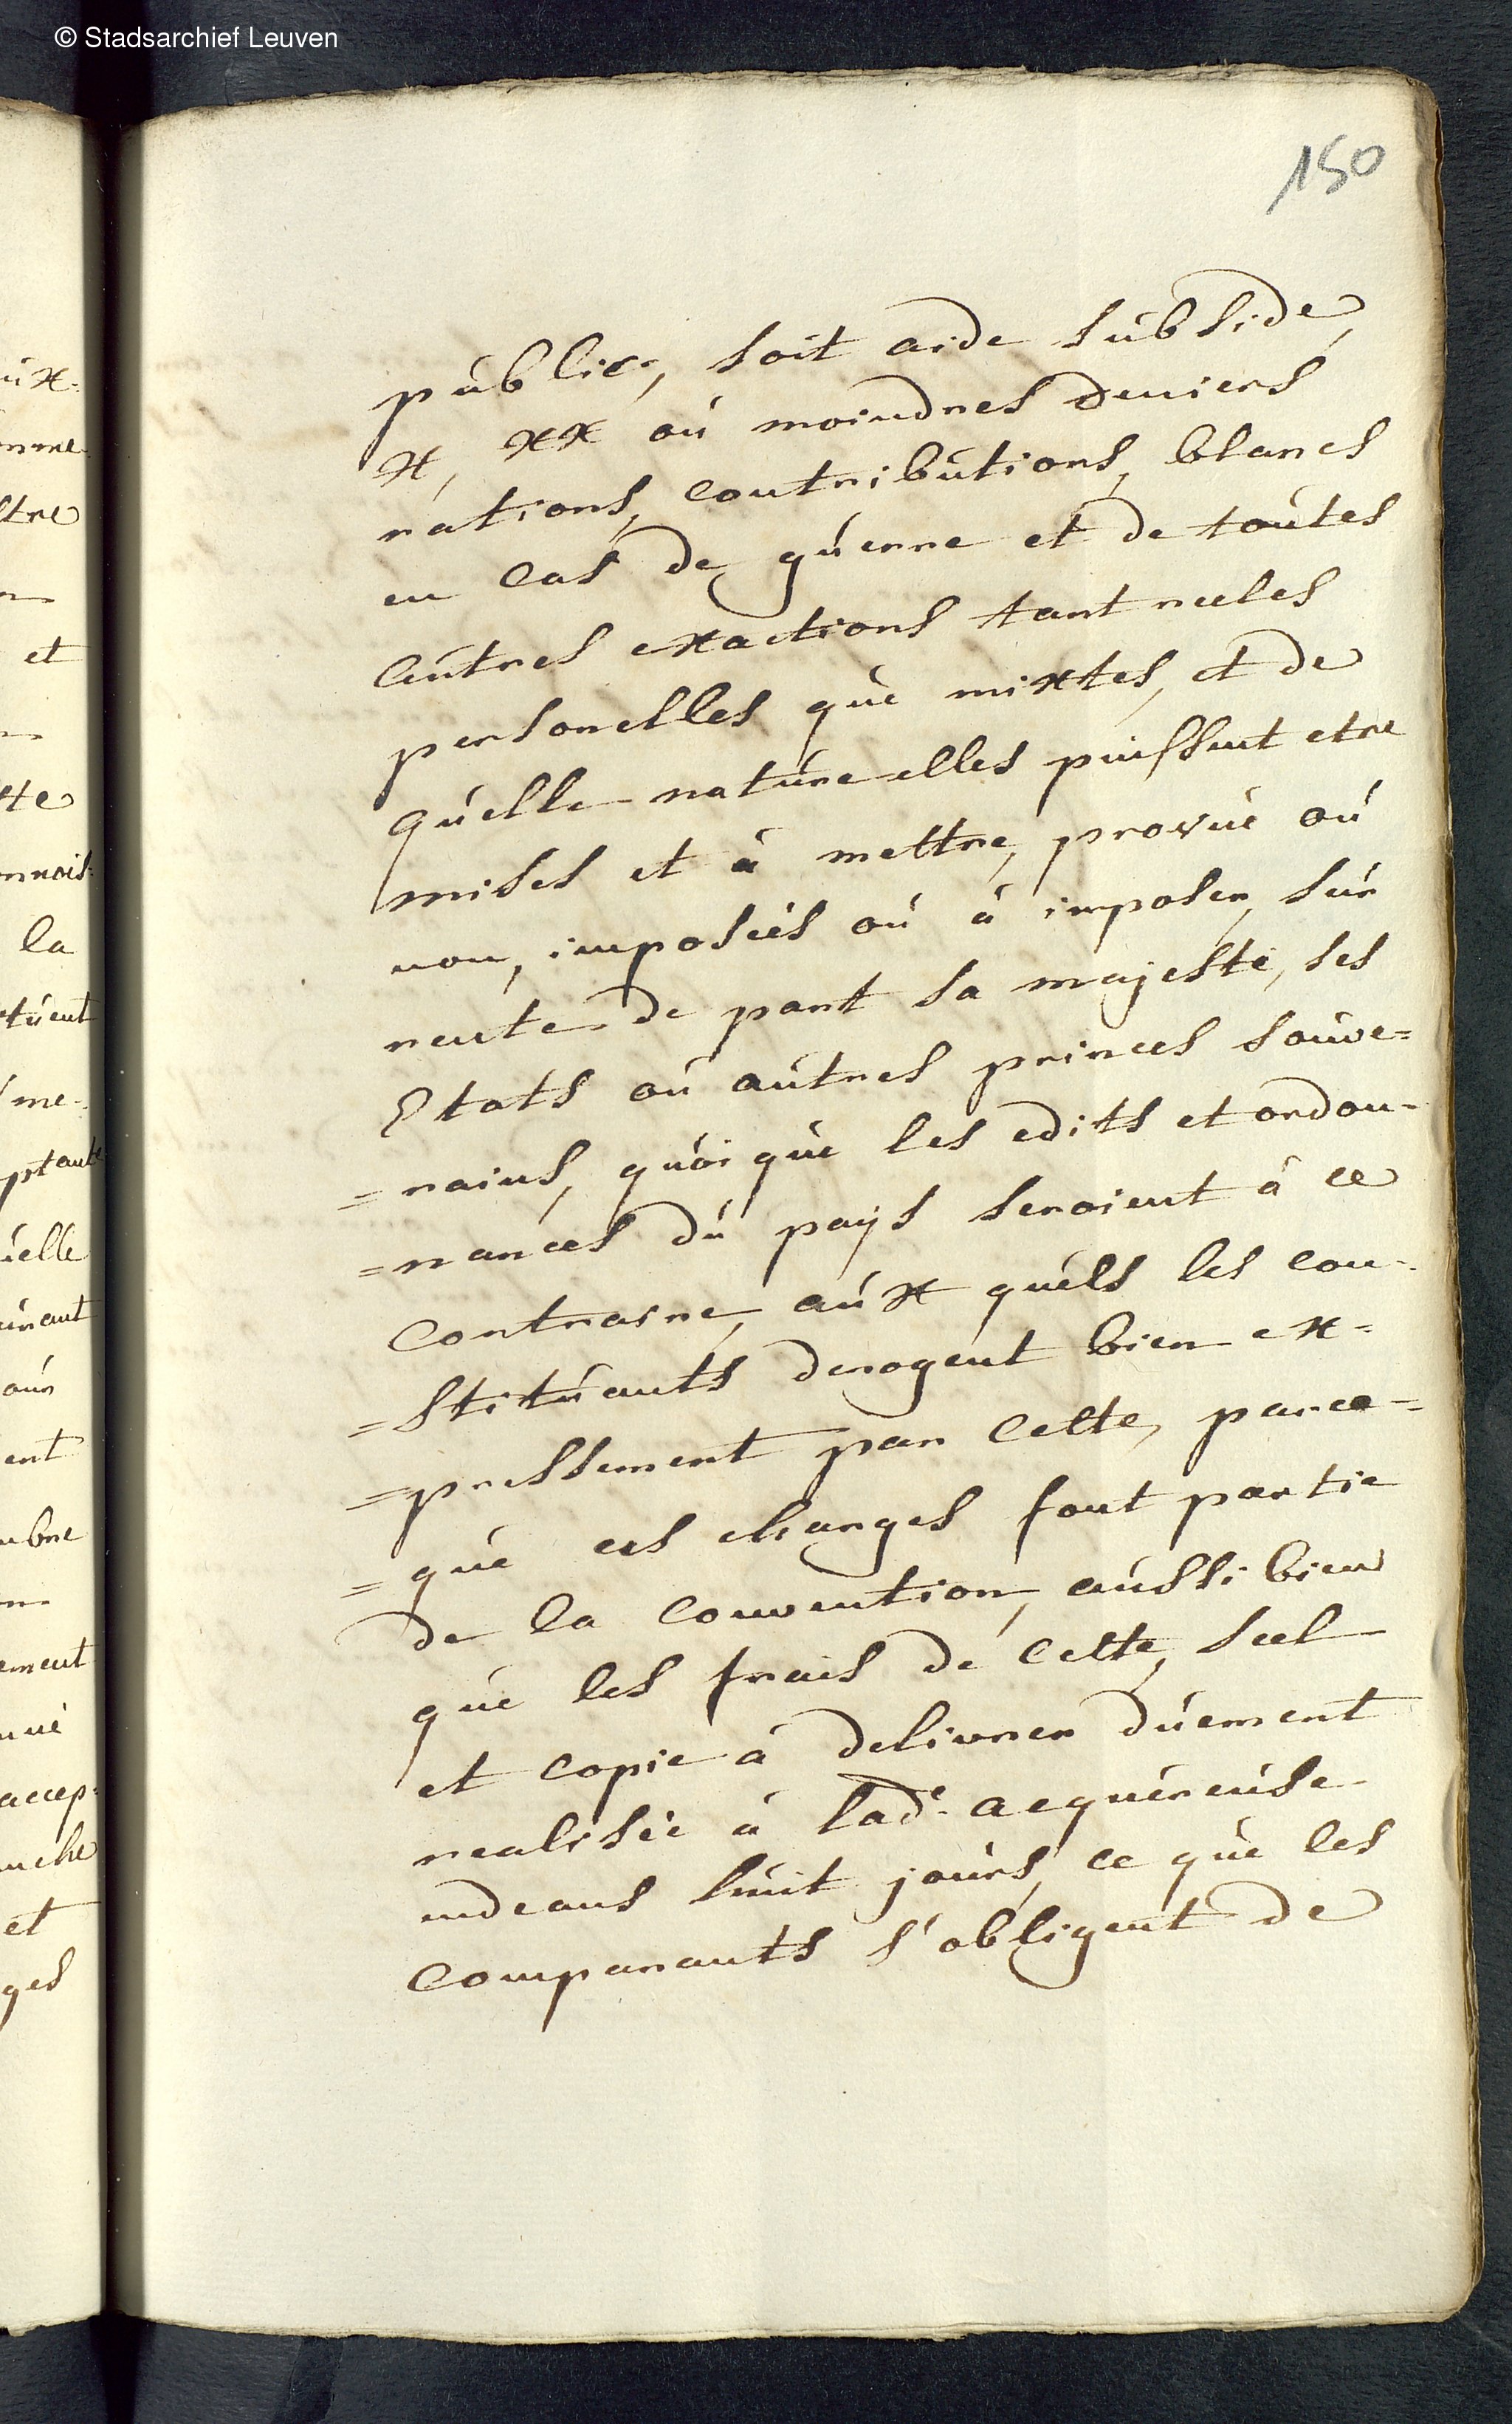 © Stadsarchief Leuven
150
public, soit aide subside,
x, xx ou moindres deniers
rations, contributions, blancs
en cas de guerre et de toutes
autres exactions tant reeles
personelles que mixtes, et de
quelle nature elles puissent etre
mises et à mettre, provue ou
non, imposées ou à imposer, sur
rente de part sa majesté, ses
Etats ou autres princes souve=
=rains, quoique les edits et ordon-
=nances du pays seroient à ce
contraire, aux quels les con-
=stituants derogent bien ex=
=pressement par cette, parce=
=que ces charges font partie
de la convention, aussi bien
que les frais de cette, seel
et copie à delivrer duement
realisée à lade. acquereuse
endeans huit jours, ce que les
comparants s'obligent de
ux.
stre
et
tte
la
tuent
me-
ptante
uelle
urant
our
ent
mbre
ement
accep-
nche
et
ges